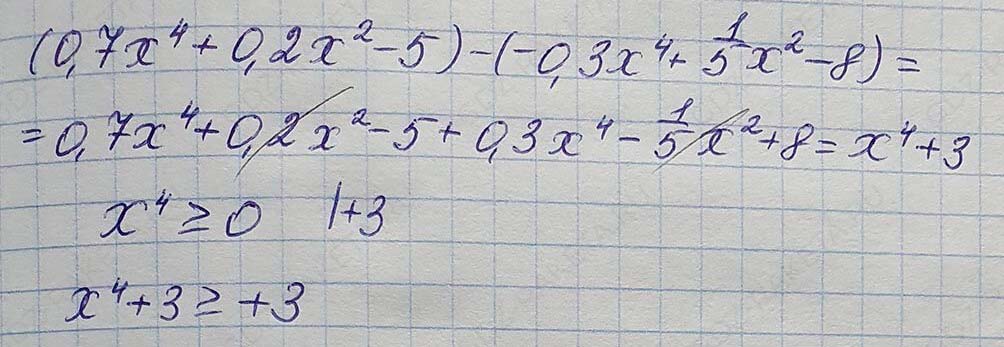 (0,7x⁴+0,2x²-5)-(-0,3x⁴+1/5x²-8)=
=0,7x⁴+0,2x²-5+0,3x⁴-1/5x²+8=x⁴+3
x⁴≥0 |+3
x⁴+3≥+3